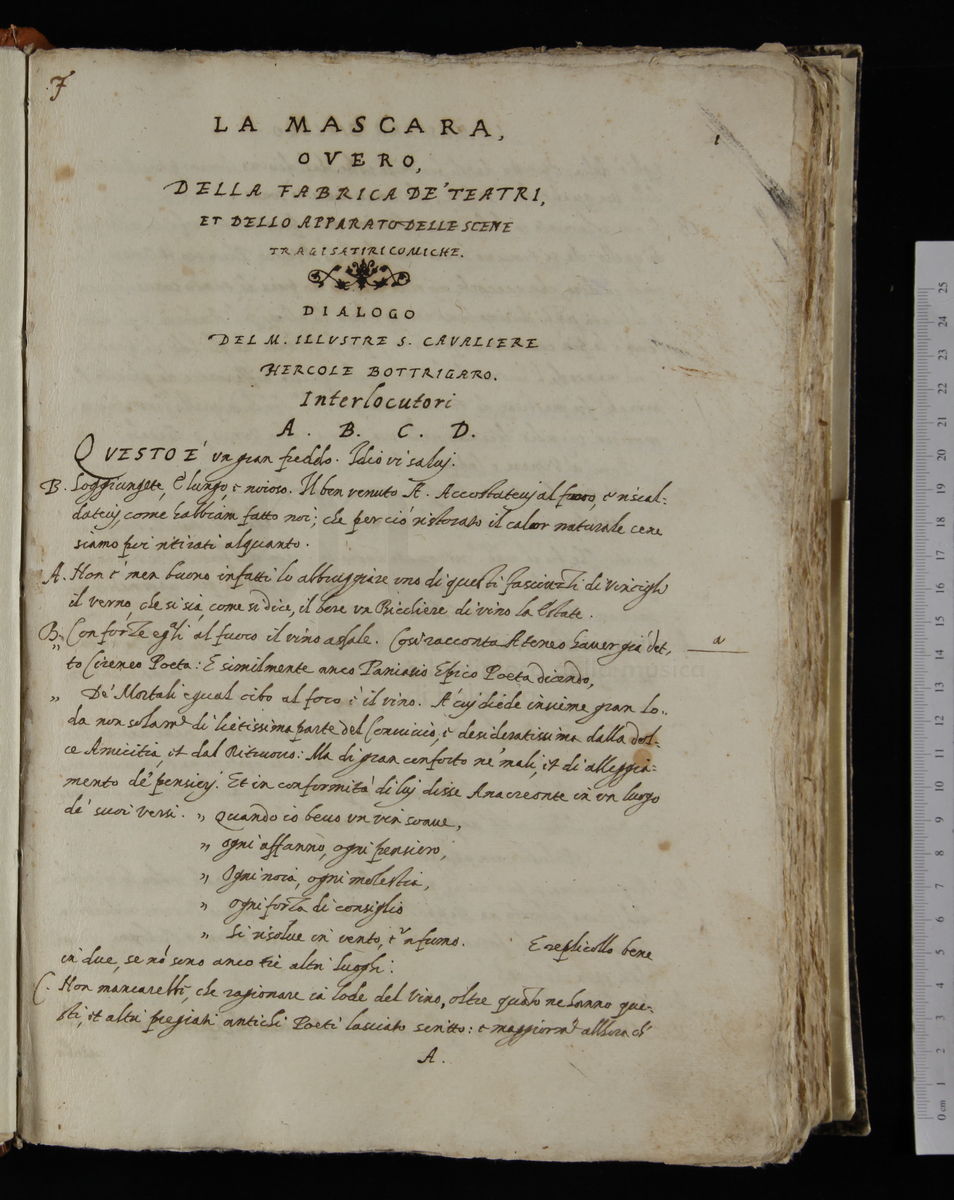 F
1
LA MASCARA,
OVERO,
DELLA FABRICA DE' TEATRI,
ET DELLO APPARATO DELLE SCENE
TRAGISATIRICOMICHE.
DIALOGO
DEL M. ILLUSTRE S. CAVALIERE
HERCOLE BOTTRIGARO.
Interlocutori
A. B. C. D.
QVESTO E' un gran freddo. Idio vi salvj.
B. Soggiungete, E' lungo, e noioso. Il ben venuto A. Accostatevj al fuoco, e riscal-
datevj come habbiam fatto noi; che per ciò ristorato il calor naturale cene
siamo poi ritirati alquanto.
A. Non è men buono infatti lo abbruggiare uno di questi fascinetti di Vincigli
il verno, che si sia, come si dice, il bere un Bicchiere di vino la Estate.
B. Con forze egli al fuoco il vino assale. Così racconta Ateneo haver già det,
a
„ to Cireneo Poeta: E similmente anco Paniasio Epico Poeta dicendo,
„ De' Mortali egual cibo al foco è il vino. A' cuj diede insieme gran lo..
da non solam.te di lietissima parte del Convivio, e desideratissima dalla dol-
ce Amicitia, et dal Ritrovo: Ma di gran conforto ne' mali, et di alleggia-
mento de' pensierj. Et in conformità di luj disse Anacreonte in un luogo
de' suoi versi. „ Quando io bevo un vin soave,
„ ogni affanno, ogni pensiero,
„ Ogni noia, ogni molestia,
„ ogni forza di consiglio
„ Si risolve in vento, e 'n fumo. E replicollo bene
in due, se nò sono anco tre altri luoghi:
C. Non mancarebbe, che ragionare in lode del Vino, oltre quāto ne hanno que-
sti, et altri pregiati antichi Poeti lasciato scritto: e maggiorm.te allhora ch'
A.